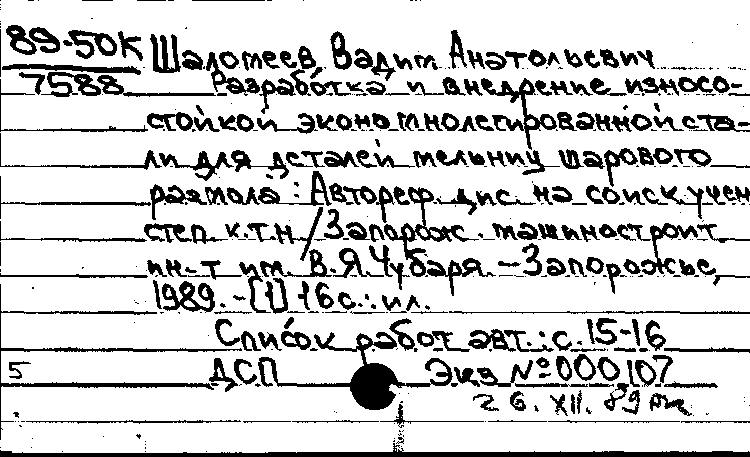 89-50К Шаломеев Вадим Анатольевич
7588 Разработка и внедрение износо-
стойкой экономнолегированной ста-
ли для деталей мельниц шарового
размола : Автореф. дис. на соиск. учен.
степ. к.т.н. / Запорож. машиностроит.
ин-т им. В.Я. Чубаря. - Запорожье,
1989. - [1] 16 с. : ил.
Список работ авт. : с. 15-16
5 ДСП Экз № 000107
26. XII. 89